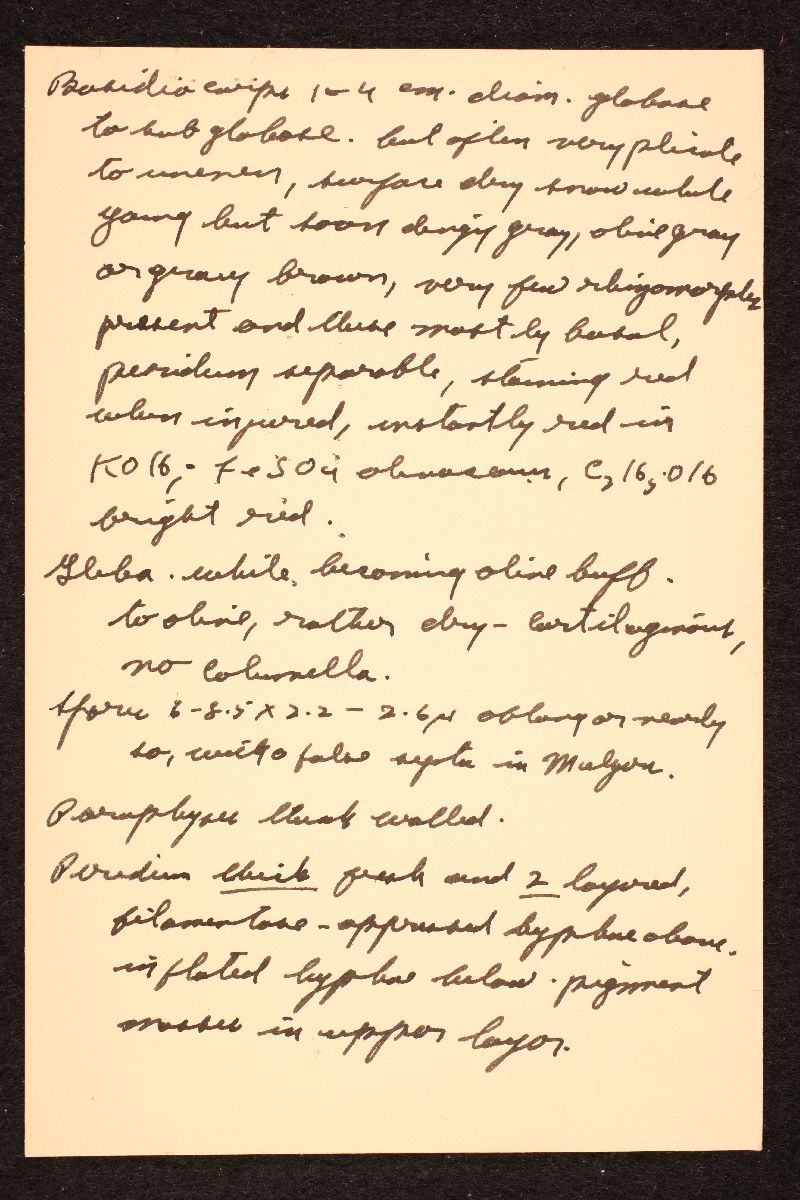 Basidiocarps 1-4 cm. diam. globose
to subglobose. but often very plicate
to uneven, surface dry snow white
young but soon dingy gray, olive gray
or gravy brown, very few rhizomorphs
present and these mostly basal,
peridium separable, staining red
when injured, instantly red in
KOH, - FeSO4 C2H5OH
bright red.
Gleba. white, becoming olive buff.
to olive, rather dry - cartilaginous,
no columella.
Spores 6-8.5 x 2.2 - 2.6µ oblong or nearly
so, with a false septa in Melzer.
Paraphyses thick walled.
Peridium thick fresh and 2 layered,
filamentose - appressed hyphae above.
inflated hyphae below. pigment
masses in upper layer.